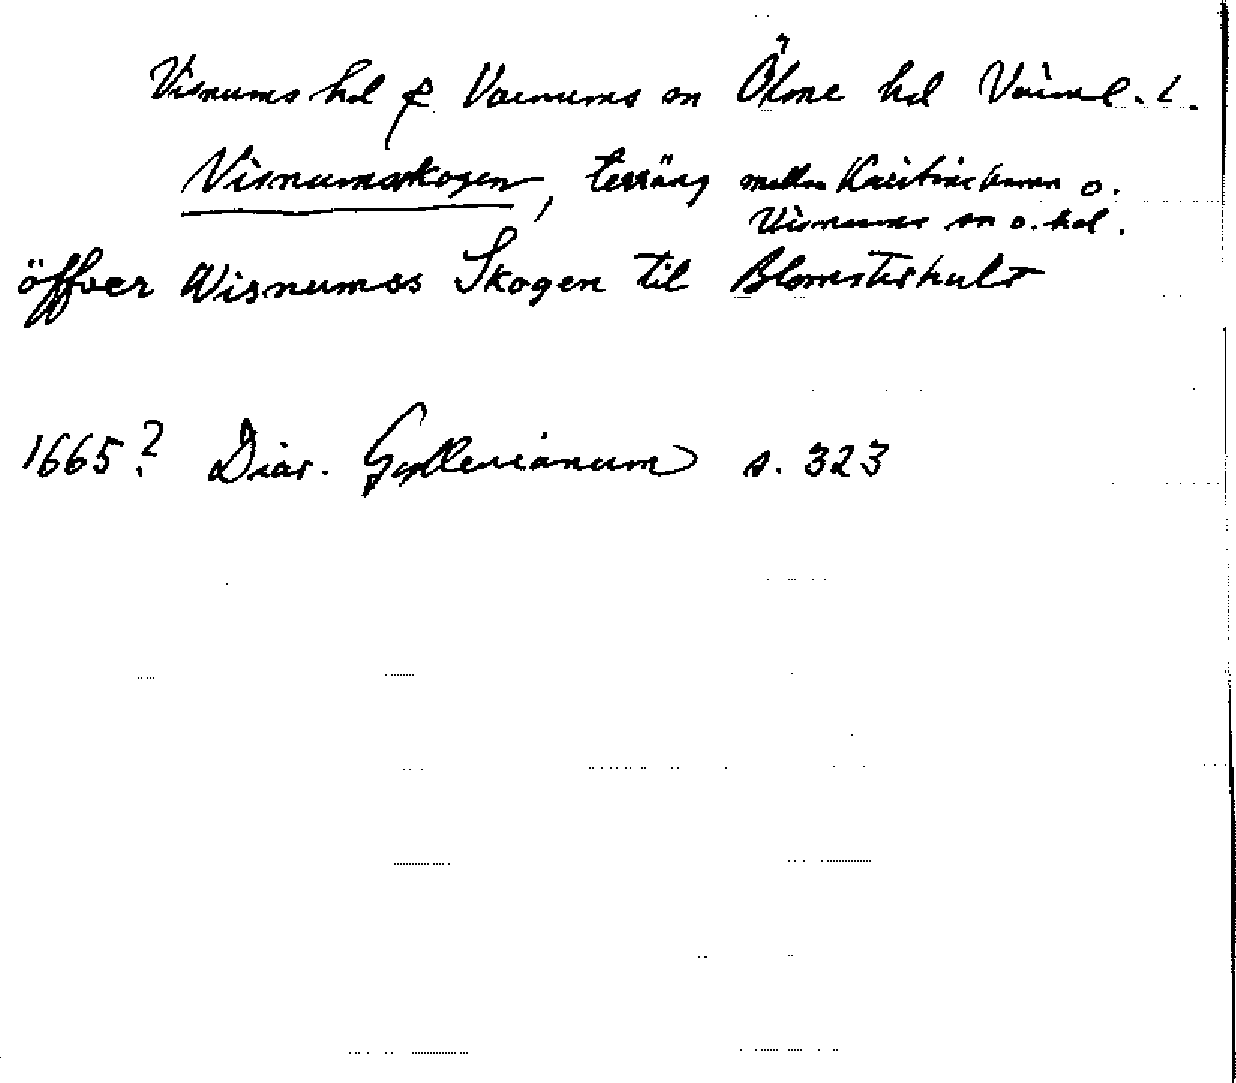 Visnums hd & Varnums sn Ölme hd Värml. l.
Visnumskogen, terräng mellan Kristinehamn o.
Visnums sn o. hd.
öffver Wisnumss Skogen til Blomsterhult
1665? Diar. Gyllenianum s. 323